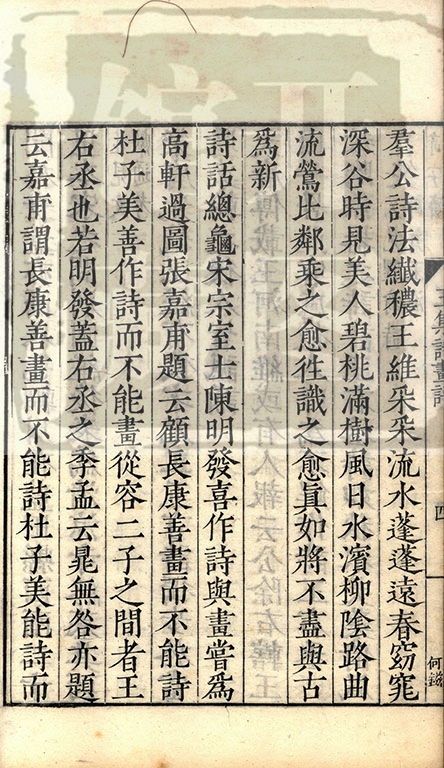 羣公詩法纖穠王維采采流水蓬蓬遠春窈窕
深谷時見美人碧桃滿樹風日水濱柳陰路曲
流鶯比鄰乘之愈徃識之愈眞如將不盡與古
爲新
詩話總龜宋宗室士陳明發喜作詩與畫嘗爲
高軒過圖張嘉甫題云顧長康善畫而不能詩
杜子美善作詩而不能畫從容二子之間者王
右丞也若明發蓋右丞之季孟云晁無咎亦題
云嘉甫謂長康善畫而不能詩杜子美能詩而
四
何鎡